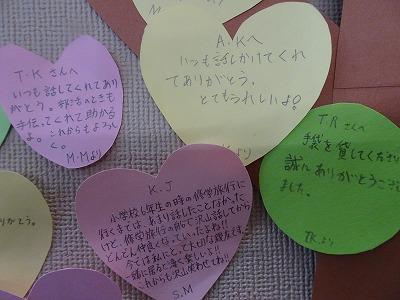 T.Kさんへ
いつも話してくれてあり
がとう。部活のときも
手伝ってくれて助かる
よ。これからもよろし
く。
M.Mより
A.Kへ
いつも話しかけてくれ
てありがとう。
とてもうれしいよ!
Kより
T.Rさんへ
手袋を貸してくださり
誠にありがとうござい
ました。
T.K.より
りがとう。
K.J
小学校6年生の時の修学旅行に
行くまでは、あまり話したことなかった
けど、修学旅行の部屋で沢山話してから
どんどん仲良くなっていったよね!!
今では私にとって大切な親友です。
一緒に居れて凄く楽しいよ!!
これからも沢山笑わせてね!!
S.M